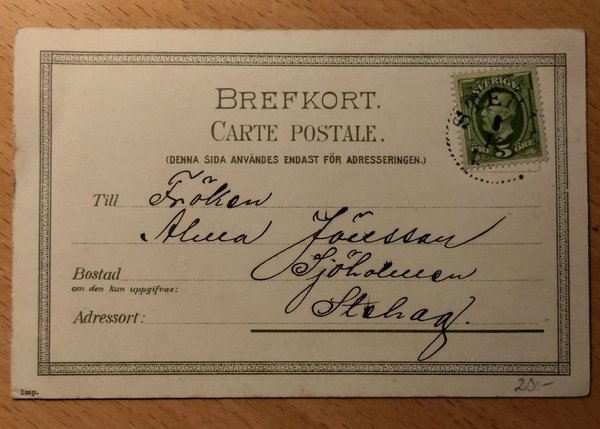 BREFKORT.
CARTE POSTALE.
(DENNA SIDA ANVÄNDES ENDAST FÖR ADRESSERINGEN.)
SVERIGE
5 ÖRE
Till Fröken
Alma Jönsson
Bostad Sjöholmen
om den kan uppgifvas:
Adressort: Stehag.
Imp.
20:-